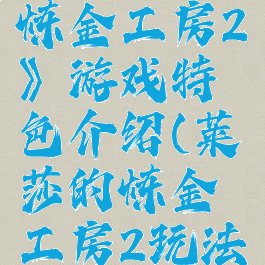 炼金工房2
》游戏特
色介绍(莱
莎的炼金
工房2玩法